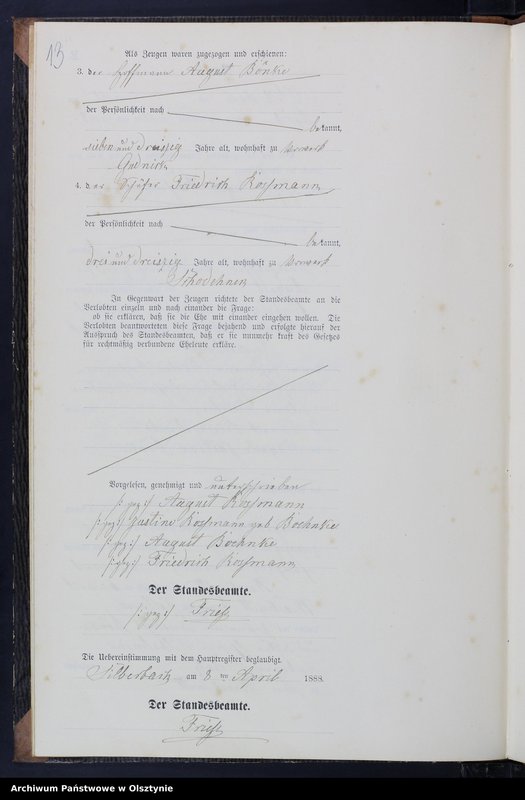 13
Als Zeugen waren zugezogen und erschienen:
3. der Hofmann August Bönke
der Persönlichkeit nach
bekannt,
sieben und dreiszig Jahre alt, wohnhaft zu Vorwerk
4. der Schäfer Friedrich Rossmann
der Persönlichkeit nach
bekannt,
drei und dreiszig Jahre alt, wohnhaft zu Vorwerk
In Gegenwart der Zeugen richtete der Standesbeamte an die
Verlobten einzeln und nach einander die Frage:
ob sie erklären, daß sie die Ehe mit einander eingehen wollen. Die
Verlobten beantworteten diese Frage bejahend und erfolgte hierauf der
Ausspruch des Standesbeamten, daß er sie nunmehr kraft des Gesetzes
für rechtmäßig verbundene Eheleute erkläre.
Vorgelesen, genehmigt und unterschrieben
/: gez :/ August Rossmann
/: gez :/ Justine Rossmann geb. Boehnke
/: gez :/ August Boehnke
/: gez :/ Friedrich Rossmann
Der Standesbeamte.
/: gez :/
Die Uebereinstimmung mit dem Hauptregister beglaubigt
Silberbach am 8 ten April 1888.
Der Standesbeamte.
Archiwum Państwowe w Olsztynie